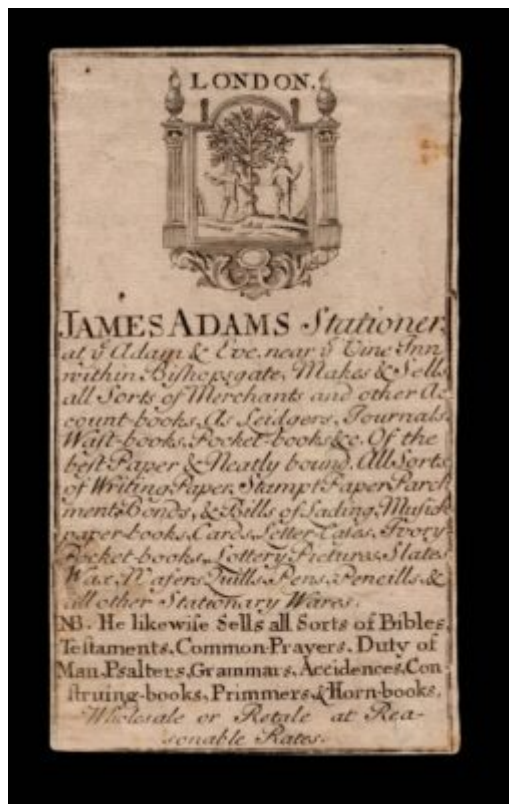 LONDON.
JAMES ADAMS Stationer,
at yͤ Adam & Eve, near yͤ Vine Inn
within Biſhopsgate, Makes & Sells
all Sorts of Merchants and other Ac
count-books, As Leidgers, Journals,
Waſt-books, Pocket-books &c. Of the
beſt Paper & Neatly bound, All Sorts
of Writing Paper, Stampt Paper, Parch
ment, Bonds, & Bills of Lading, Musick
paper-books, Cards, Letter-Cases, Ivory-
Pocket-books, Lottery Pictures, Slates
Wax, Wafers, Quills, Pens, Pencills, &
all other Stationary Wares.
NB. He likewiſe Sells all Sorts of Bibles,
Teſtaments, Common-Prayers, Duty of
Man, Psalters, Grammars, Accidences, Con-
ſtruing-books, Primmers, & Horn-books,
Wholesale or Retale at Rea-
sonable Rates.